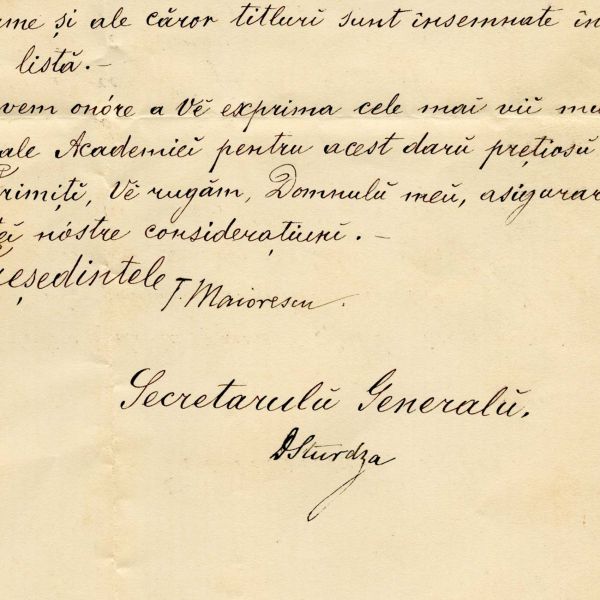 me și ale căror titluri sunt însemnate în
listă. —
vem onóre a Vĕ exprima cele mai viĭ mu
ale Academieĭ pentru acest darŭ prețiosŭ
rimițĭ, Vĕ rugăm, Domnulŭ meu, asigurar
eĭ nóstre considerațiunĭ. —
reședintele T. Maiorescu.
Secretarulŭ Generalŭ.
DSturdza